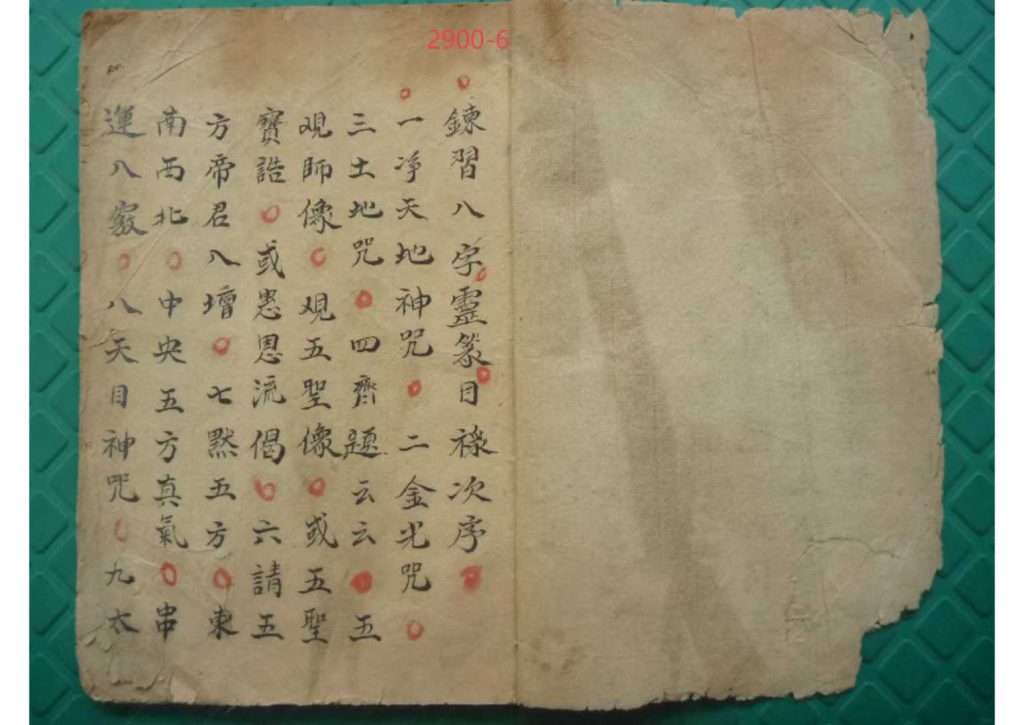 2900-6
鍊習八字靈篆目祿次序
一净天地神咒二金光咒
三土地咒四齊題云云五
观師像观五聖像或五聖
寶誥或患恩流偈六請五
方帝君入壇七黙五方東
南西北中央五方真氣串
運八竅八天目神咒九太